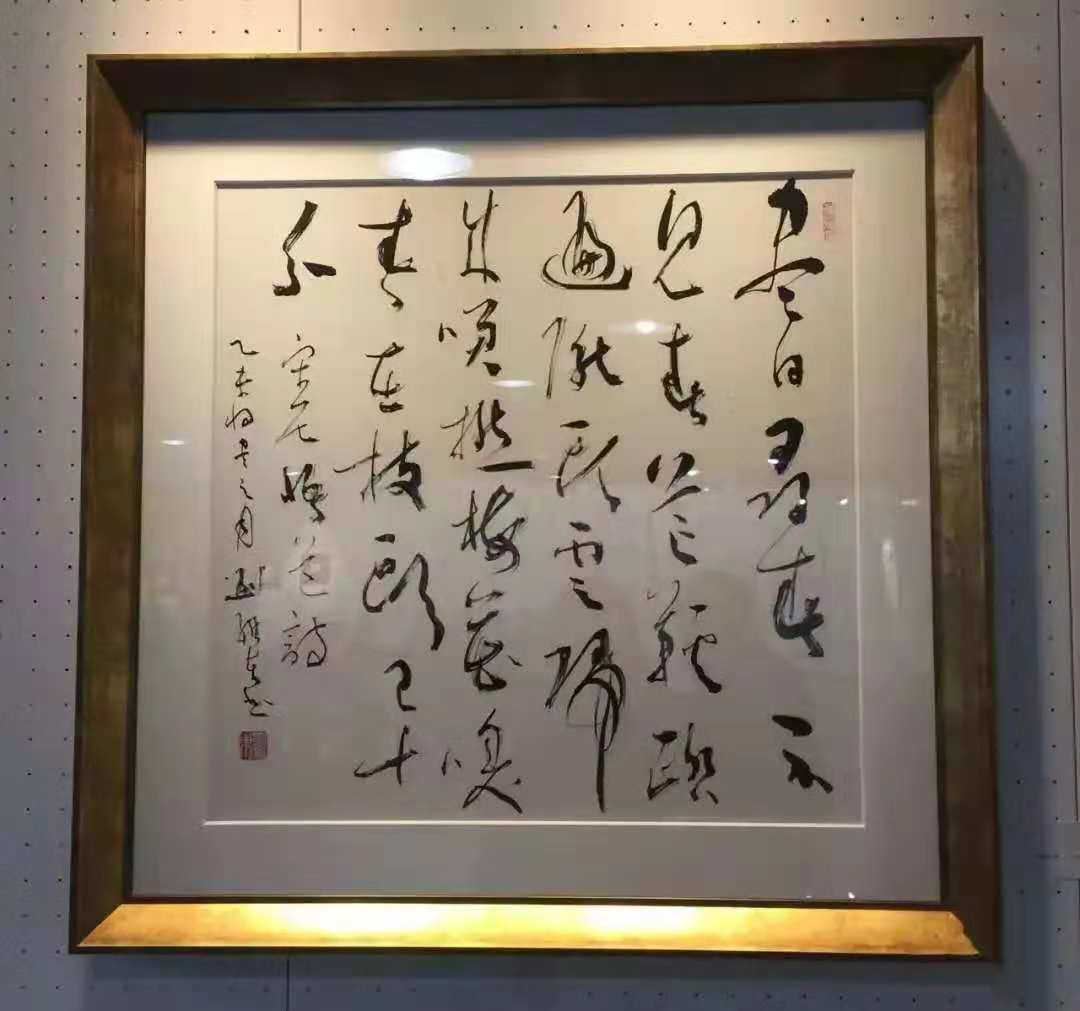 盡日尋春不
見春芒鞋踏
遍隴頭雲歸
來咲撚梅花嗅
春在枝頭已十
分 宋尼悟道詩
乙未 之 書